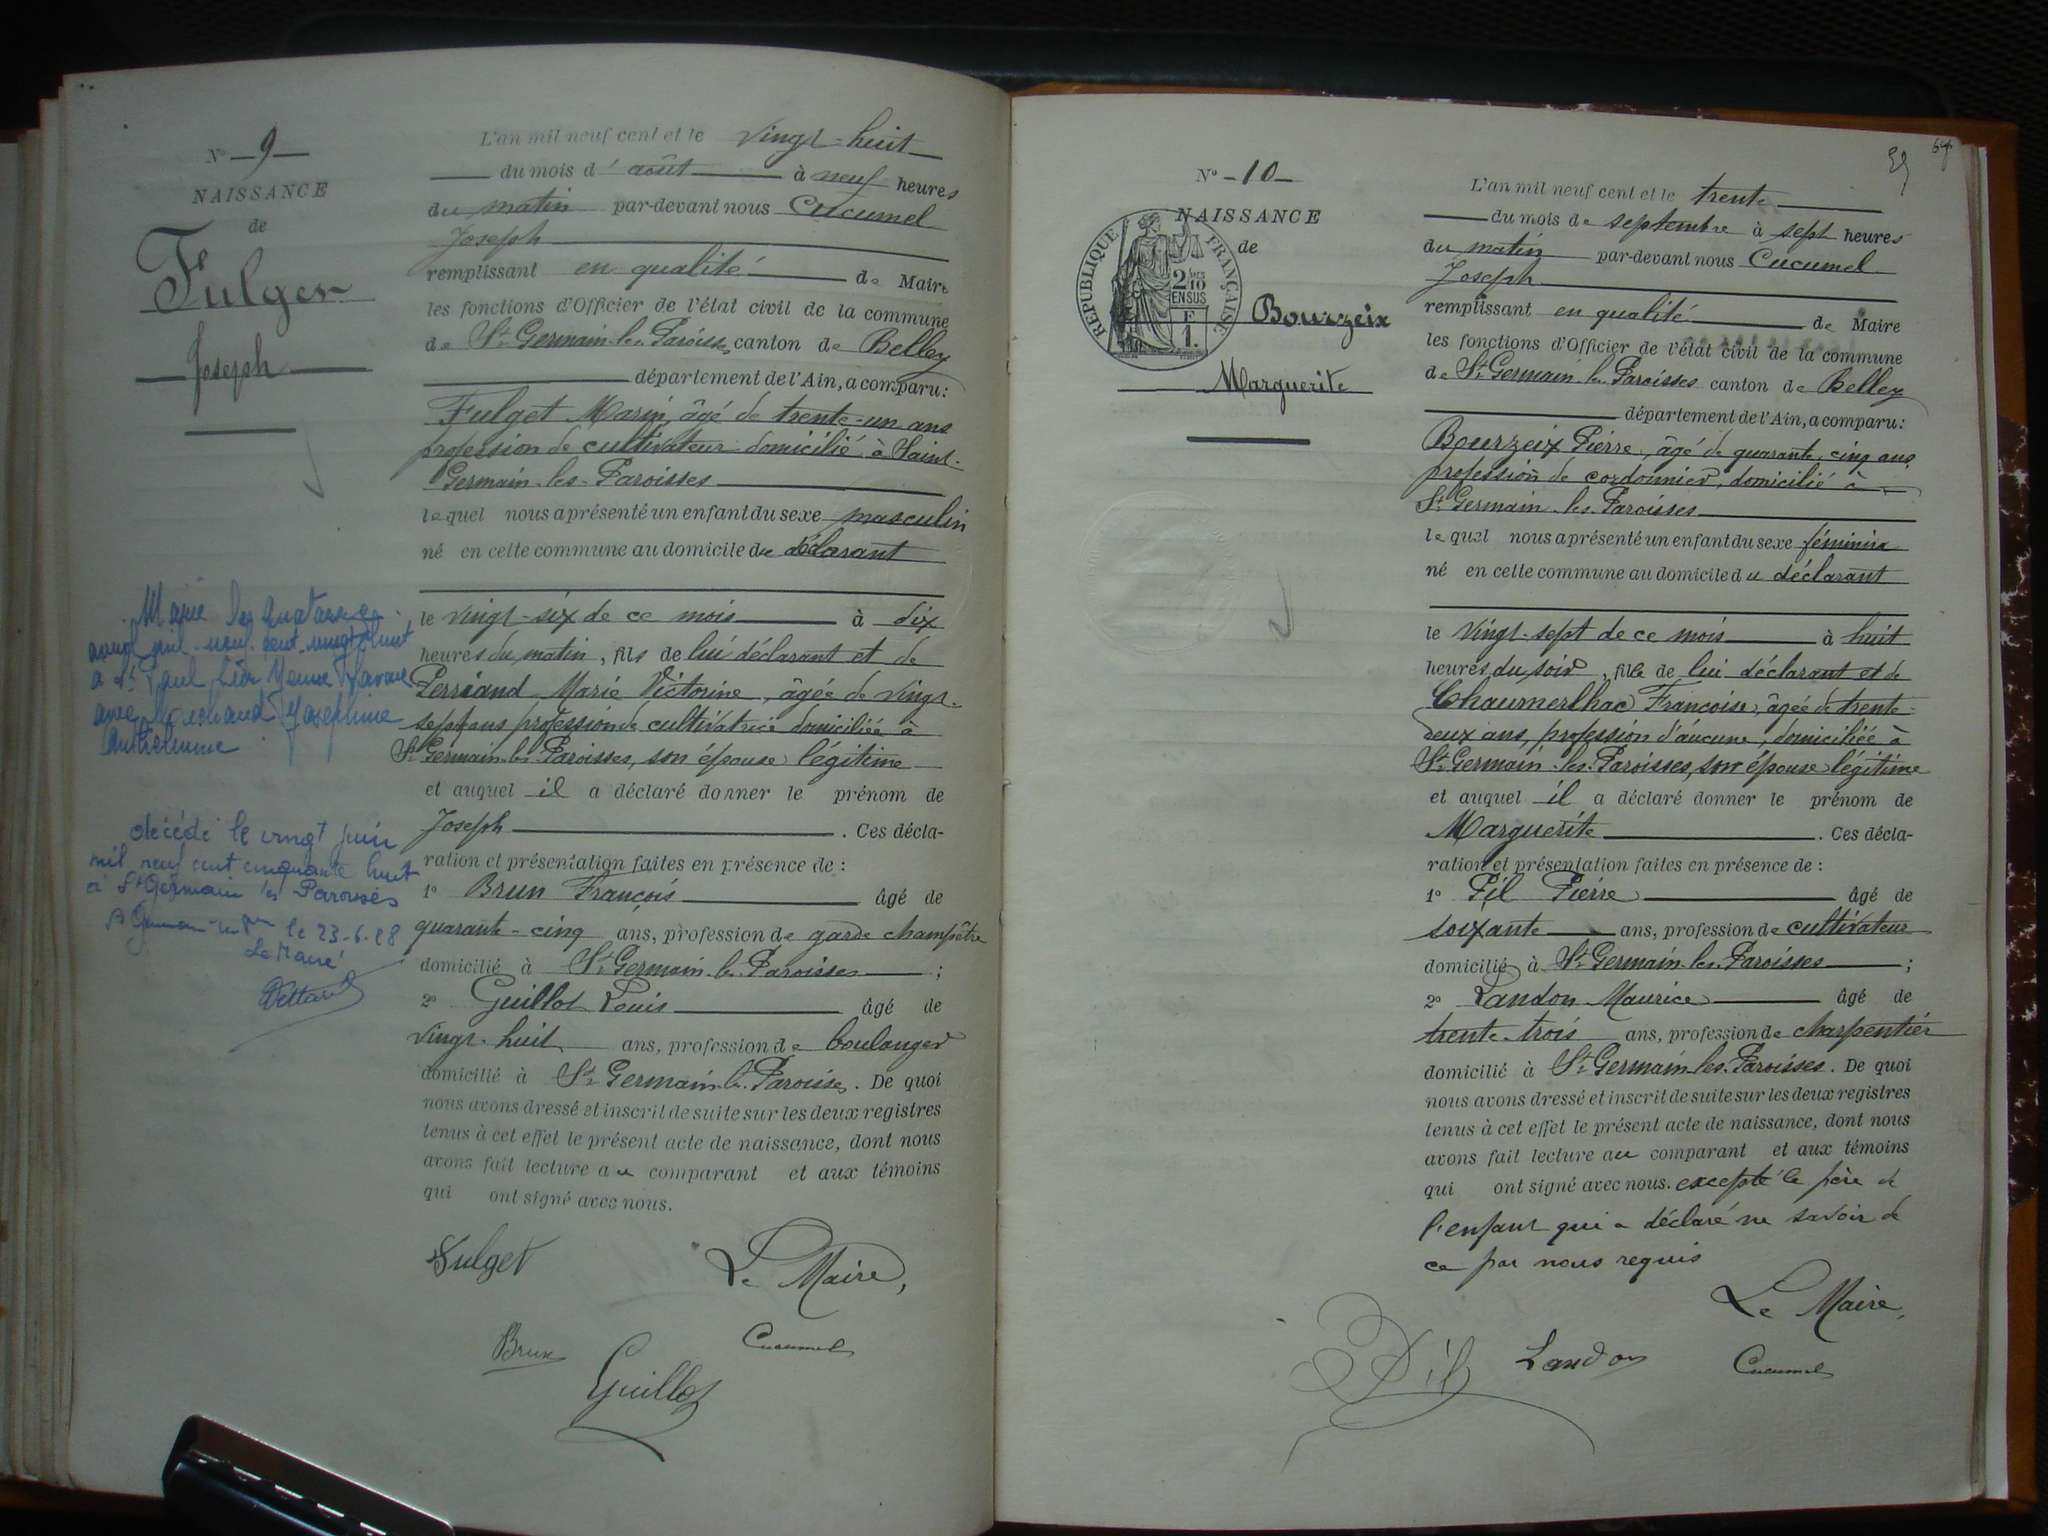 N° 9
NAISSANCE
de
Fulget
Joseph
Marié le quatorze
avril mil neuf cent vingt huit
à St Paul
avec Joséphine
décédé le vingt juin
mil neuf cent cinquante huit
à St Germain les Paroisses
le 23-6-58
Le Maire
L'an mil neuf cent et le vingt-huit
du mois d'août à neuf heures
du matin par-devant nous Cucumel
Joseph
remplissant en qualité de Maire
les fonctions d'Officier de l'état civil de la commune
de St Germain-les-Paroisses canton de Belley
département de l'Ain, a comparu :
Fulget Marin, âgé de trente-un ans
profession de cultivateur domicilié à Saint-
Germain-les-Paroisses
lequel nous a présenté un enfant du sexe masculin
né en cette commune au domicile du déclarant
le vingt-six de ce mois à dix
heures du matin, fils de lui déclarant et de
Perriand Marie Victorine, âgée de vingt-
sept ans profession de cultivatrice domiciliée à
St Germain-les-Paroisses, son épouse légitime
et auquel il a déclaré donner le prénom de
Joseph . Ces décla-
ration et présentation faites en présence de :
1° Brun François âgé de
quarante-cinq ans, profession de garde champêtre
domicilié à St Germain-les-Paroisses ;
2° Guillot Louis âgé de
vingt-huit ans, profession de boulanger
domicilié à St Germain-les-Paroisses. De quoi
nous avons dressé et inscrit de suite sur les deux registres
tenus à cet effet le présent acte de naissance, dont nous
avons fait lecture au comparant et aux témoins
qui ont signé avec nous.
Fulget Le Maire,
Brun Cucumel
Guillot
59
N° 10
NAISSANCE
de
RÉPUBLIQUE FRANÇAISE
2/10
EN SUS
F
1.
Bourzeix
Marguerite
L'an mil neuf cent et le trente
du mois de septembre à sept heures
du matin par-devant nous Cucumel
Joseph
remplissant en qualité de Maire
les fonctions d'Officier de l'état civil de la commune
de St Germain-les-Paroisses canton de Belley
département de l'Ain, a comparu :
Bourzeix Pierre, âgé de quarante-cinq ans,
profession de cordonnier, domicilié à
St Germain-les-Paroisses
lequel nous a présenté un enfant du sexe féminin
né en cette commune au domicile du déclarant
le vingt-sept de ce mois à huit
heures du soir, fille de lui déclarant et de
Chaumerlhac Françoise, âgée de trente-
deux ans, profession d'aucune, domiciliée à
St Germain-les-Paroisses, son épouse légitime
et auquel il a déclaré donner le prénom de
Marguerite . Ces décla-
ration et présentation faites en présence de :
1° Pil Pierre âgé de
soixante ans, profession de cultivateur
domicilié à St Germain-les-Paroisses ;
2° Landon Maurice âgé de
trente-trois ans, profession de charpentier
domicilié à St Germain-les-Paroisses. De quoi
nous avons dressé et inscrit de suite sur les deux registres
tenus à cet effet le présent acte de naissance, dont nous
avons fait lecture au comparant et aux témoins
qui ont signé avec nous. excepté le père de
l'enfant qui a déclaré ne savoir de
ce par nous requis
Le Maire,
Pil Landon Cucumel